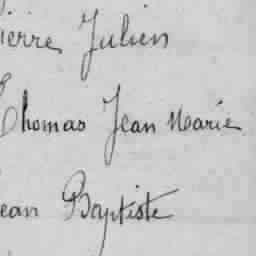 ierre Julien
Thomas Jean Marie
ean Baptiste